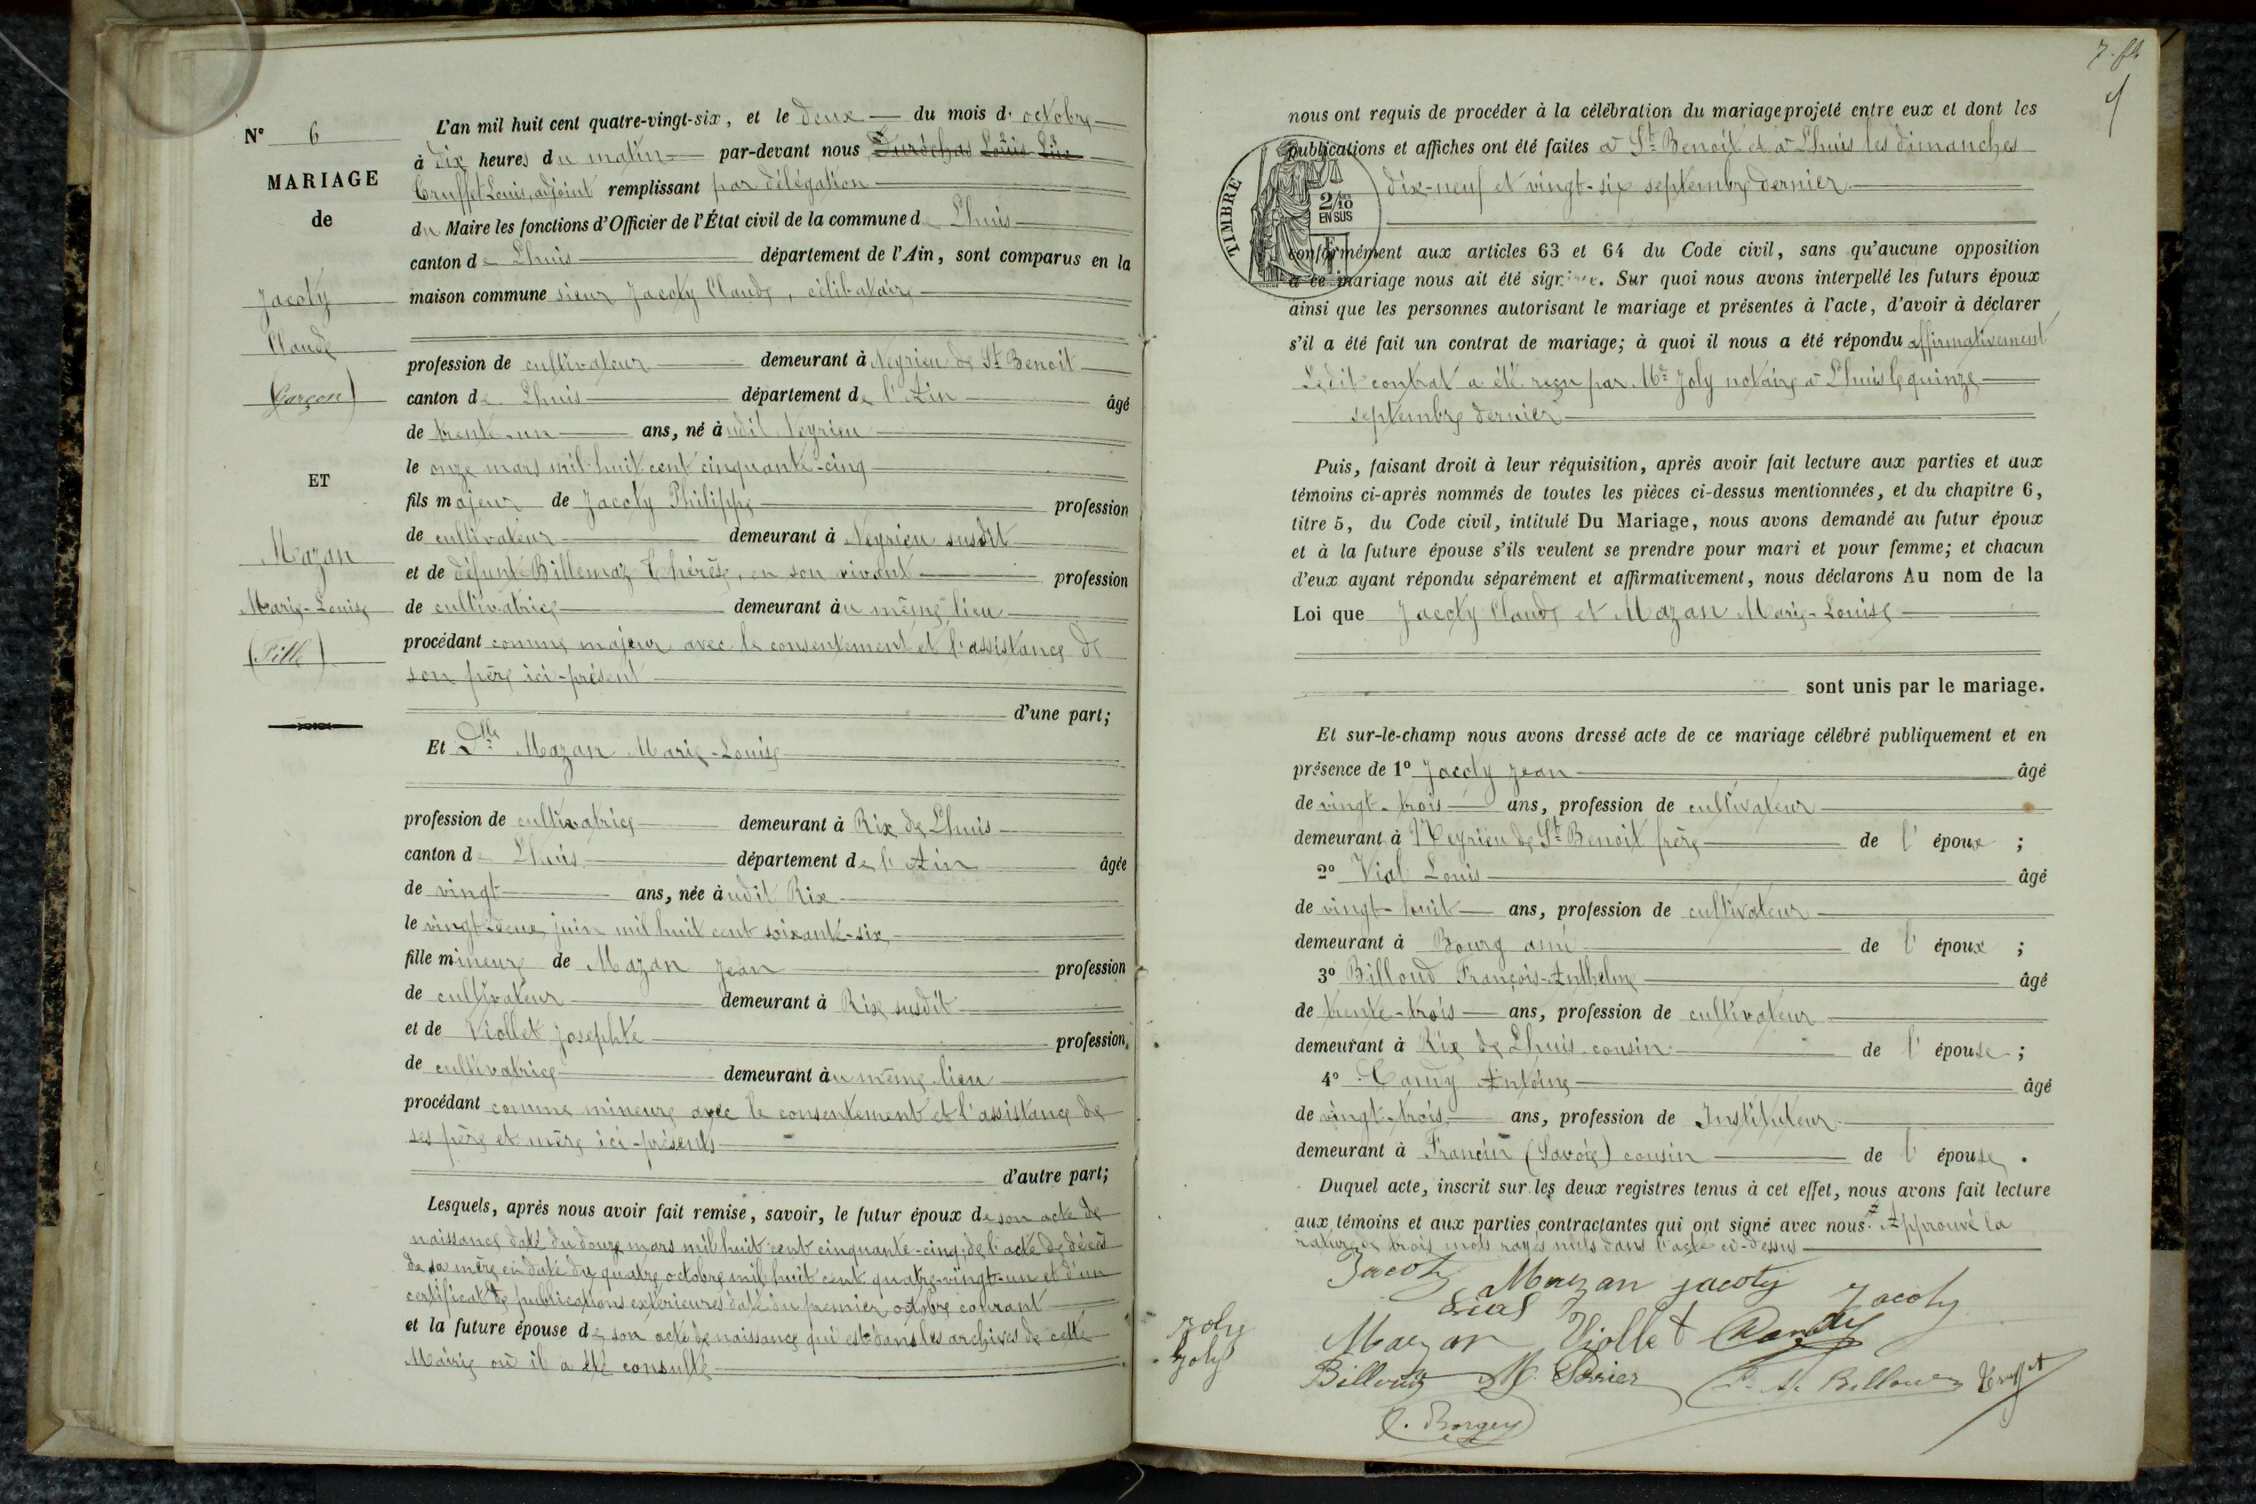 N° 6
MARIAGE
de
Jacoty
Claude
(Garçon)
ET
Mazan
Marie-Louise
(Fille)
L'an mil huit cent quatre-vingt-six, et le deux du mois d'octobre
à dix heures du matin par-devant nous Louis
Truffet Louis, adjoint remplissant par délégation
du Maire les fonctions d'Officier de l'État civil de la commune de Lhuis
canton de Lhuis département de l'Ain, sont comparus en la
maison commune sieur Jacoty Claude, célibataire
profession de cultivateur demeurant à Neyrieu de St Benoit
canton de Lhuis département de l'Ain âgé
de trente-un ans, né audit Neyrieu
le onze mars mil huit cent cinquante-cinq
fils majeur de Jacoty Philippe profession
de cultivateur demeurant à Neyrieu susdit
et de défunte Billemaz Thérèse, en son vivant profession
de cultivatrice demeurant au même lieu
procédant comme majeur avec le consentement et l'assistance de
son père ici-présent
d'une part;
Et Dlle Mazan Marie-Louise
profession de cultivatrice demeurant à Rix de Lhuis
canton de Lhuis département de l'Ain âgée
de vingt ans, née audit Rix
le vingt-deux juin mil huit cent soixante-six
fille mineure de Mazan Jean profession
de cultivateur demeurant à Rix susdit
et de Viollet Josephte profession
de cultivatrice demeurant au même lieu
procédant comme mineure avec le consentement et l'assistance de
ses père et mère ici-présents
d'autre part;
Lesquels, après nous avoir fait remise, savoir, le futur époux de son acte de
naissance daté du douze mars mil huit cent cinquante-cinq; de l'acte de décès
de sa mère en date du quatre octobre mil huit cent quatre-vingt-un et d'un
certificat de publications extérieures daté du premier octobre courant
et la future épouse de son acte de naissance qui est dans les archives de cette
Mairie où il a été consulté
nous ont requis de procéder à la célébration du mariage projeté entre eux et dont les
publications et affiches ont été faites à St Benoit et à Lhuis les dimanches
dix-neuf et vingt-six septembre dernier
TIMBRE
2/10
EN SUS
conformément aux articles 63 et 64 du Code civil, sans qu'aucune opposition
à ce mariage nous ait été signifiée. Sur quoi nous avons interpellé les futurs époux
ainsi que les personnes autorisant le mariage et présentes à l'acte, d'avoir à déclarer
s'il a été fait un contrat de mariage; à quoi il nous a été répondu affirmativement
Ledit contrat a été reçu par Me Joly notaire à Lhuis le quinze
septembre dernier
Puis, faisant droit à leur réquisition, après avoir fait lecture aux parties et aux
témoins ci-après nommés de toutes les pièces ci-dessus mentionnées, et du chapitre 6,
titre 5, du Code civil, intitulé Du Mariage, nous avons demandé au futur époux
et à la future épouse s'ils veulent se prendre pour mari et pour femme; et chacun
d'eux ayant répondu séparément et affirmativement, nous déclarons Au nom de la
Loi que Jacoty Claude et Mazan Marie-Louise
sont unis par le mariage.
Et sur-le-champ nous avons dressé acte de ce mariage célébré publiquement et en
présence de 1° Jacoty Jean âgé
de vingt-trois ans, profession de cultivateur
demeurant à Neyrieu de St Benoit frère de l'époux ;
2° Vial Louis âgé
de vingt-huit ans, profession de cultivateur
demeurant à Bourg ami de l'époux ;
3° Billoud François-Anthelme âgé
de trente-trois ans, profession de cultivateur
demeurant à Rix de Lhuis cousin de l'épouse ;
4° Candy Antoine âgé
de vingt-trois ans, profession de Instituteur
demeurant à Francin (Savoie) cousin de l'épouse .
Duquel acte, inscrit sur les deux registres tenus à cet effet, nous avons fait lecture
aux témoins et aux parties contractantes qui ont signé avec nous. Approuvé la
rature de trois mots rayés nuls dans l'acte ci-dessus
Jacoty Mazan Jacoty Jacoty
Vial
Joly Mazan Viollet Candy
Joly Billoud M. Perrier F. A. Billoud Truffet
C. Borgey